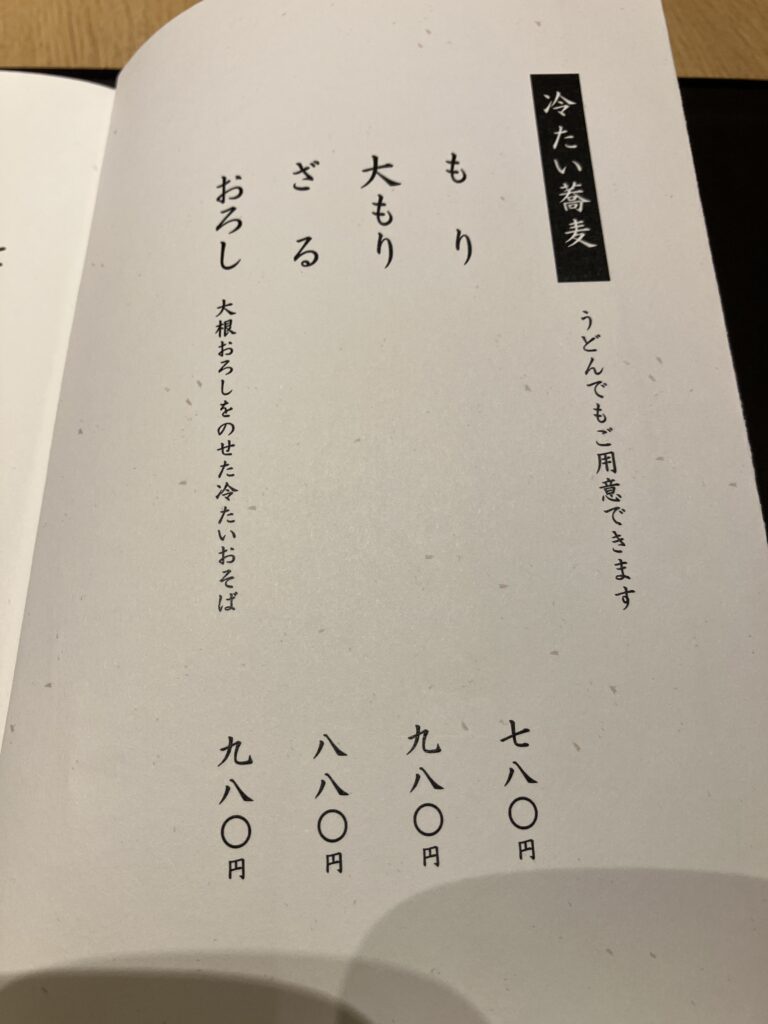 冷たい蕎麦
うどんでもご用意できます
もり 七八〇円
大もり 九八〇円
ざる 八八〇円
おろし 大根おろしをのせた冷たいおそば 九八〇円